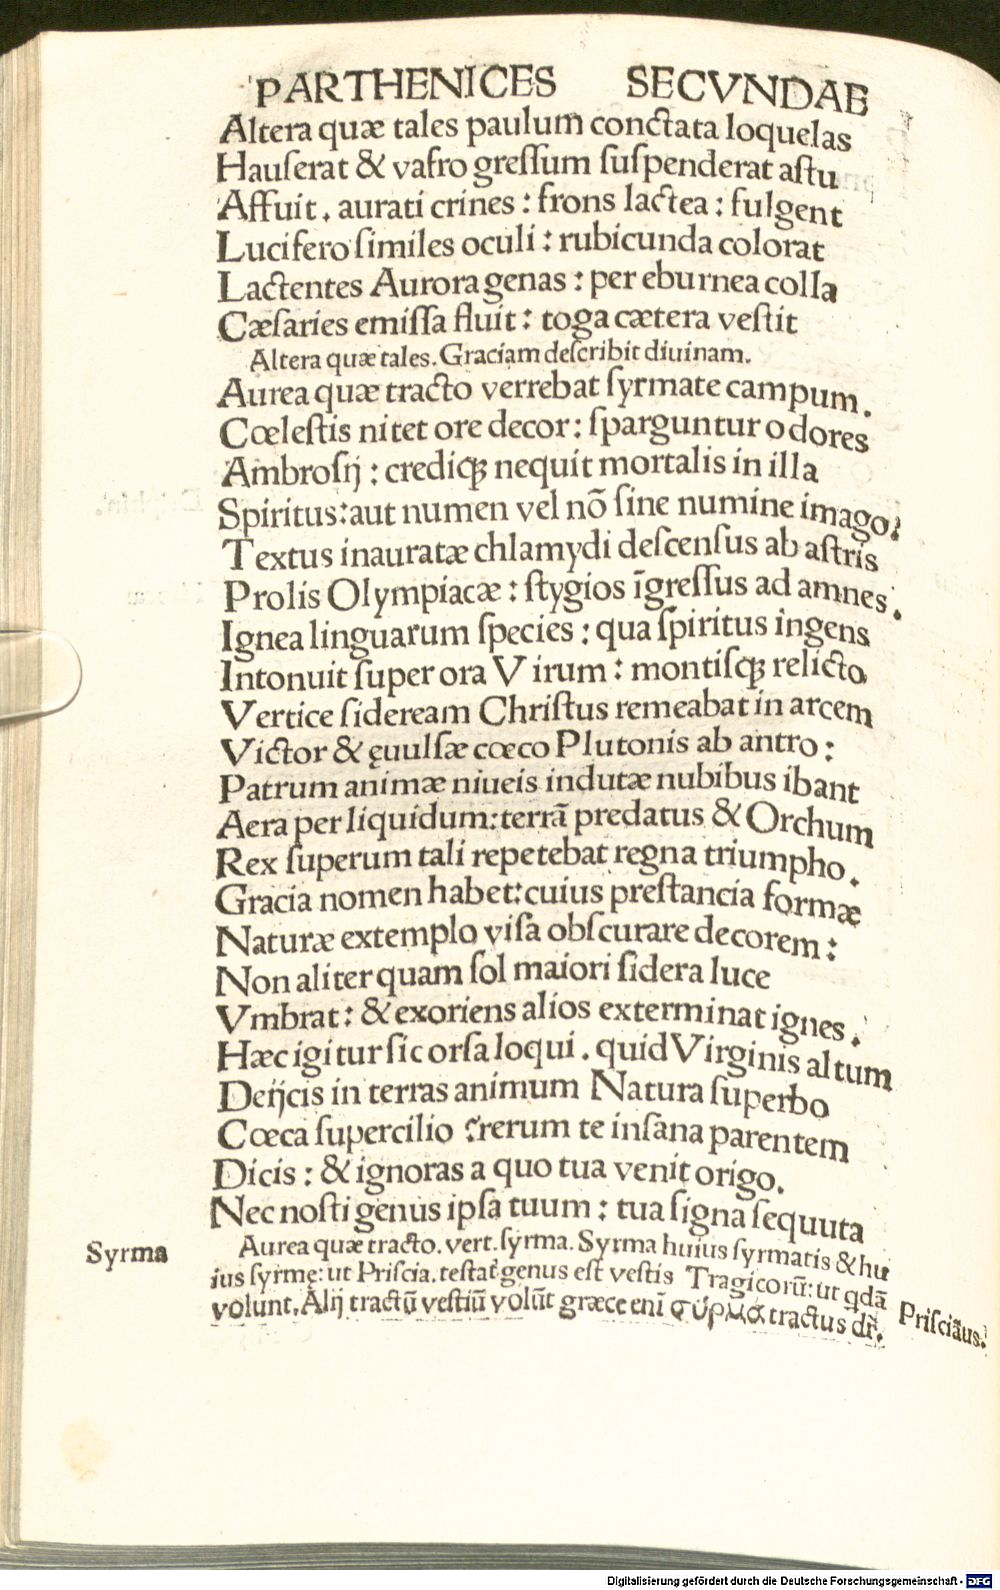 PARTHENICES SECVNDAE
Altera quæ tales paulum conctata loquelas
Hauſerat & vafro greſſum ſuſpenderat aſtu
Affuit. aurati crines : frons lactea : fulgent
Lucifero ſimiles oculi : rubicunda colorat
Lactentes Aurora genas : per eburnea colla
Cæſaries emiſſa fluit : toga cætera veſtit
Altera quæ tales. Graciam deſcribit diuinam.
Aurea quæ tracto verrebat ſyrmate campum.
Cœleſtis nitet ore decor : ſparguntur odores
Ambroſij : crediqꝫ nequit mortalis in illa
Spiritus: aut numen vel nõ ſine numine imago.
Textus inauratæ chlamydi deſcenſus ab aſtris
Prolis Olympiacæ : ſtygios ĩgreſſus ad amnes.
Ignea linguarum ſpecies : qua ſpiritus ingens
Intonuit ſuper ora Virum : montiſqꝫ relicto
Vertice ſideream Chriſtus remeabat in arcem
Victor & ęuulſæ cœco Plutonis ab antro :
Patrum animæ niueis indutæ nubibus ibant
Aera per liquidum: terrã predatus & Orchum
Rex ſuperum tali repetebat regna triumpho.
Gracia nomen habet: cuius preſtancia formæ
Naturæ extemplo viſa obſcurare decorem :
Non aliter quam ſol maiori ſidera luce
Vmbrat : & exoriens alios exterminat ignes.
Hæc igitur ſic orſa loqui. quid Virginis altum
Deijcis in terras animum Natura ſuperbo
Cœca ſupercilio ? rerum te inſana parentem
Dicis : & ignoras a quo tua venit origo.
Nec noſti genus ipſa tuum : tua ſigna ſequuta
Syrma
Aurea quæ tracto. vert. ſyrma. Syrma huius ſyrmatis & hu
ius ſyrmę: ut Priſcia. teſtat᷑ genus eſt veſtis Tragicorũ: ut qdã
volunt. Alij tractũ veſtiũ volũt græce eni᷑ σύρμα tractus dr̃.
Priſciãus.
Digitalisierung gefördert durch die Deutsche Forschungsgemeinschaft - DFG